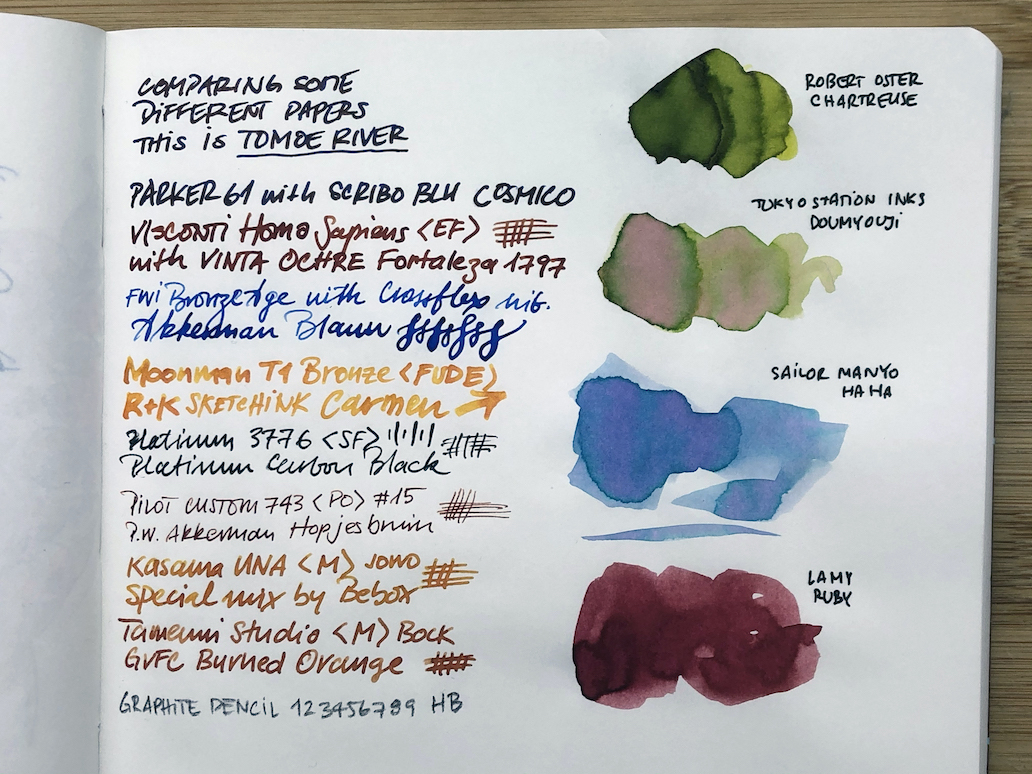 COMPARING SOME
DIFFERENT PAPERS
THIS is TOMOE RIVER
PARKER 61 with SCRIBO BLU COSMICO
VISCONTI Homo Sapiens <EF>
with VINTA OCHRE Fortaleza 1797
FWI Bronze Age with Crossflex nib.
Akkerman Blauw
Moonman T1 Bronze <FUDE>
R+K SKETCHINK Carmen
Platinum 3776 <SF>
Platinum Carbon Black
PILOT CUSTOM 743 <PO> #15
P.W. Akkerman Hopjesbruin
Kasama UNA <M> JOWO
Special mix by Bebox
Tamenui Studio <M> Bock
GVFC Burned Orange
GRAPHITE PENCIL 123456789 HB
ROBERT OSTER
CHARTREUSE
TOKYO STATION INKS
DOUMYOUJI
SAILOR MANYO
HA HA
LAMY
RUBY